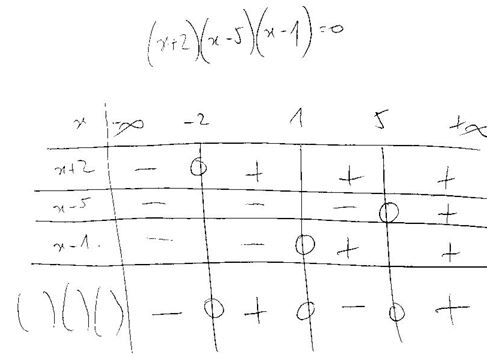 (x+2)(x-5)(x-1)=0
x -∞ -2 1 5 +∞
x+2 - 0 + + +
x-5 - - - 0 +
x-1. - - 0 + +
( )( )( ) - 0 + 0 - 0 +